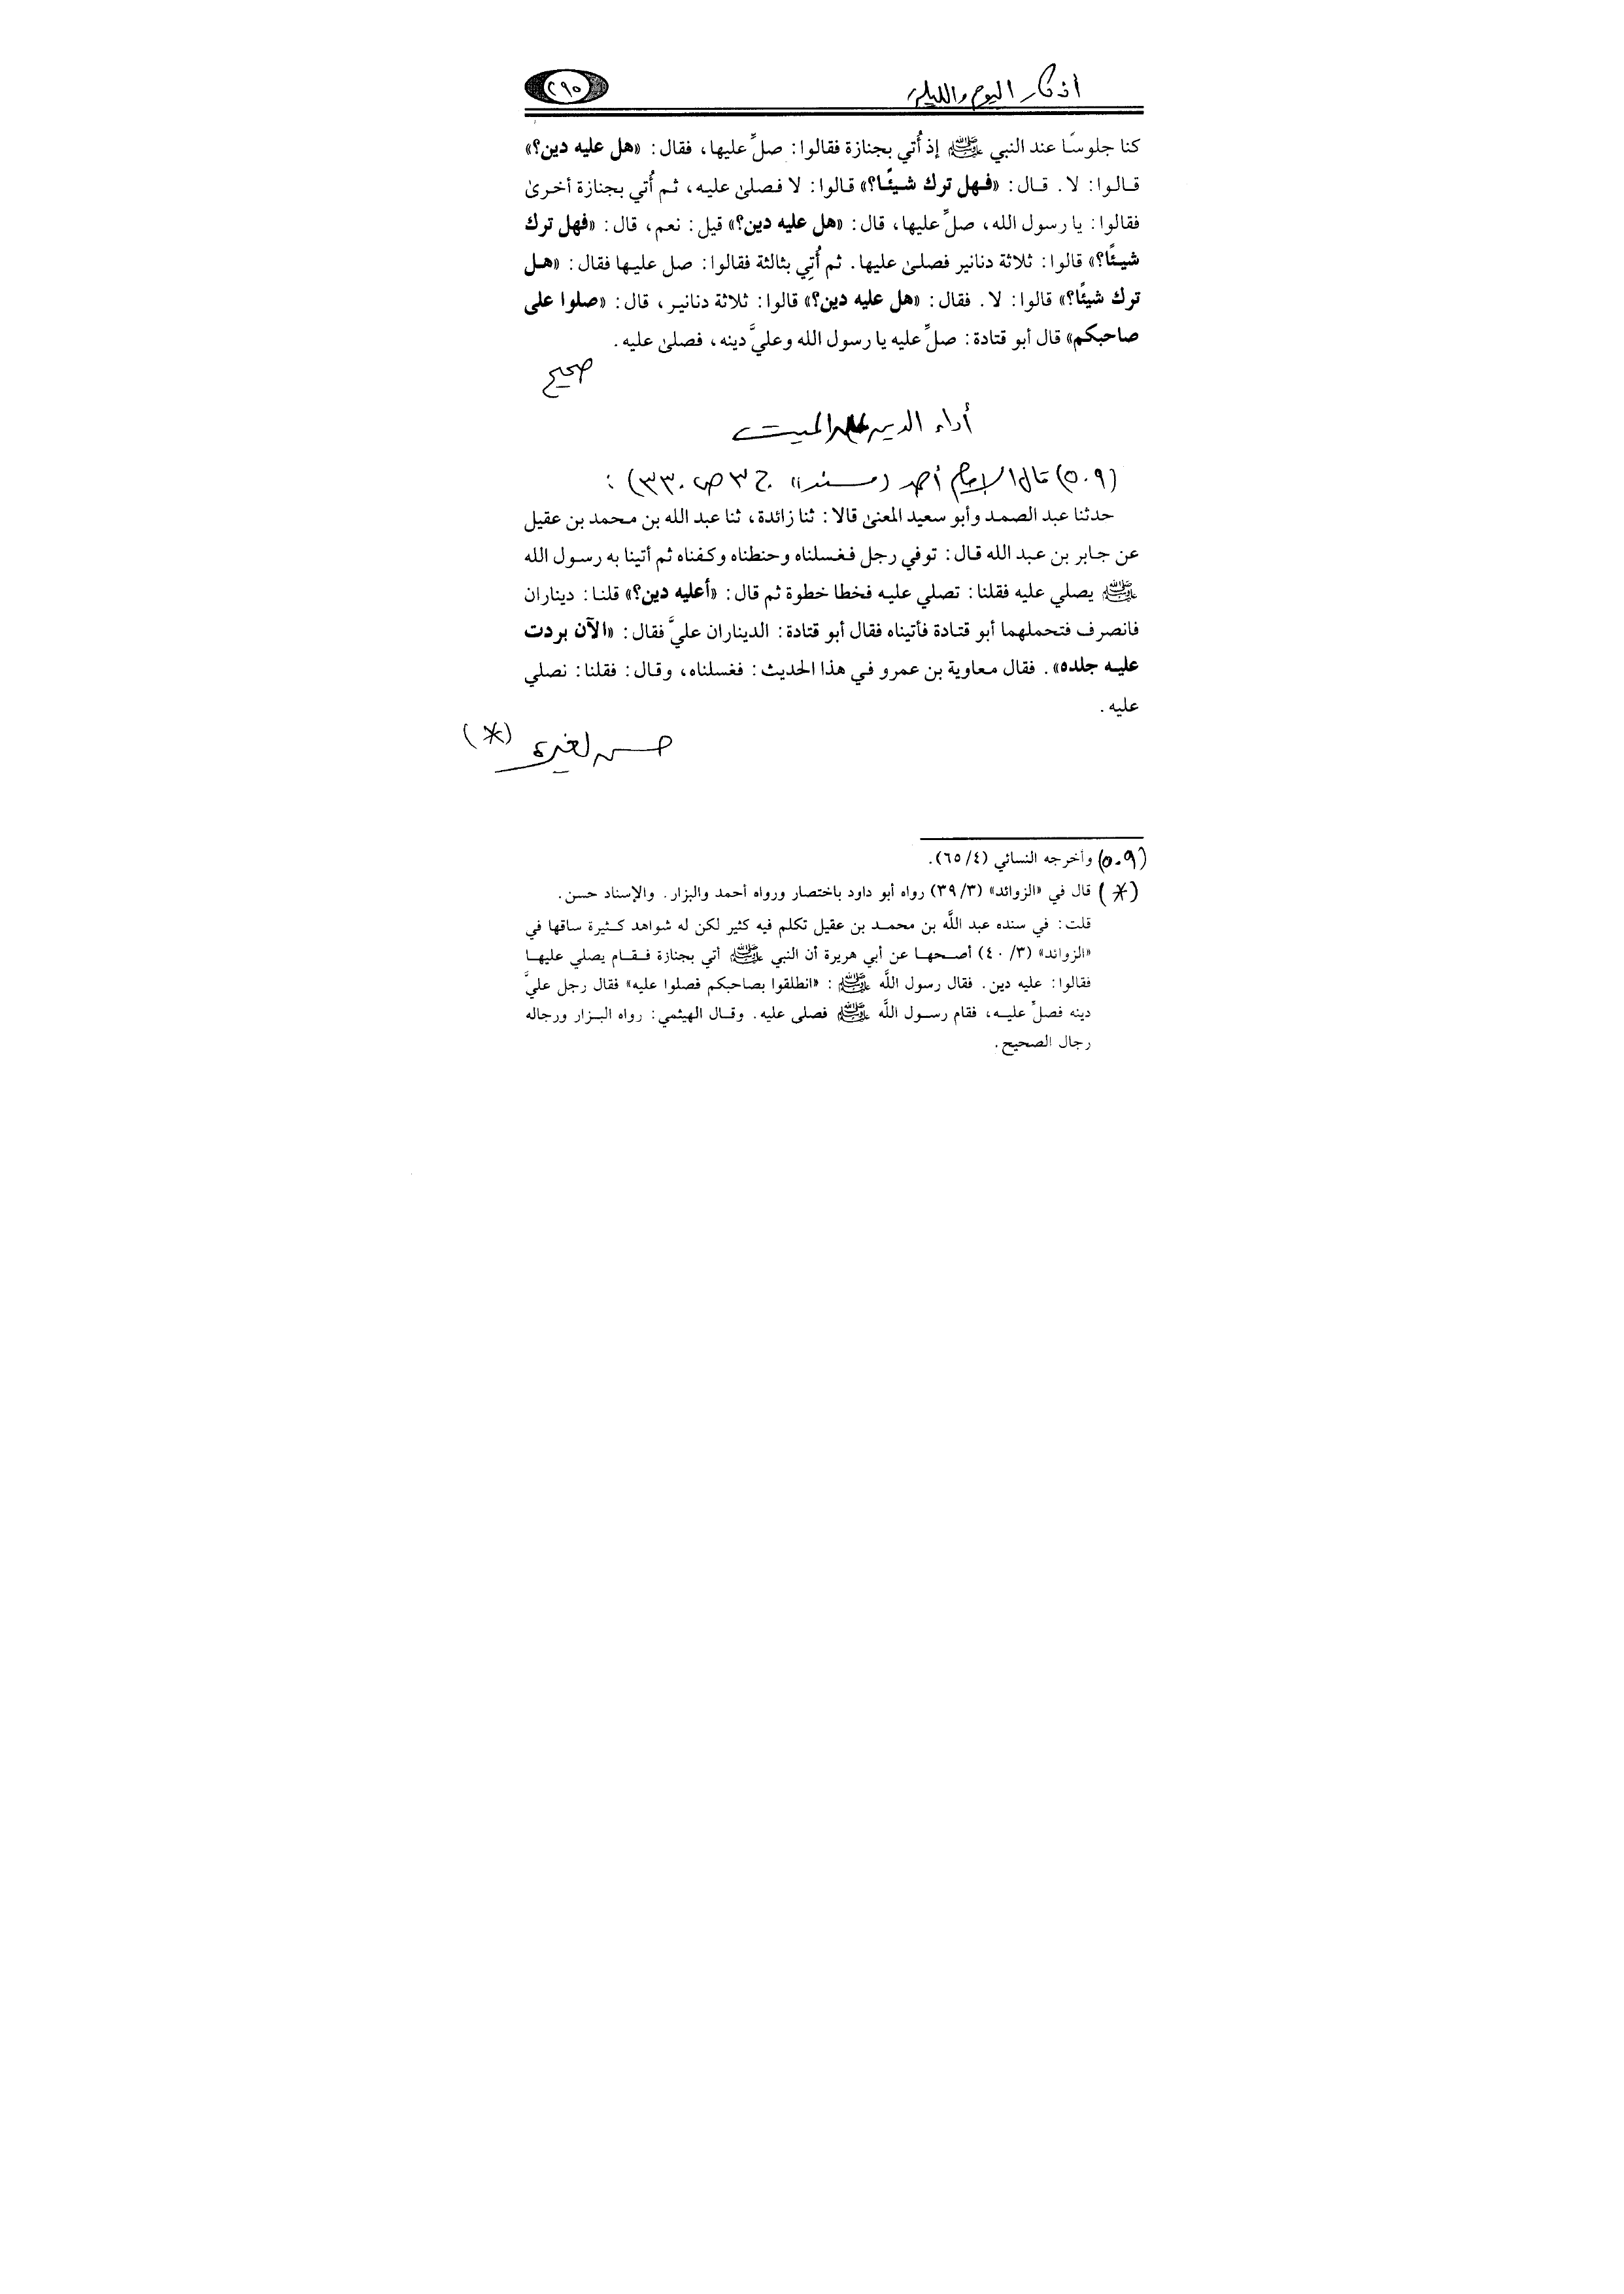 أذكار اليوم والليلة
٢٩٥
كنا جلوسًا عند النبي ﷺ إذ أُتي بجنازة فقالوا: صلِّ عليها، فقال: «هل عليه دين؟»
قالوا: لا. قال: «فهل ترك شيئًا؟» قالوا: لا فصلىٰ عليه، ثم أُتي بجنازة أخرىٰ
فقالوا: يا رسول الله، صلِّ عليها، قال: «هل عليه دين؟» قيل: نعم، قال: «فهل ترك
شيئًا؟» قالوا: ثلاثة دنانير فصلىٰ عليها. ثم أُتِي بثالثة فقالوا: صل عليها فقال: «هل
ترك شيئًا؟» قالوا: لا. فقال: «هل عليه دين؟» قالوا: ثلاثة دنانير، قال: «صلوا على
صاحبكم» قال أبو قتادة: صلِّ عليه يا رسول الله وعليَّ دينه، فصلىٰ عليه.
صحيح
أداء الدين عن الميت
(٥٠٩) قال الإمام أحمد «مسند» ج ٣ ص ٣٣٠):
حدثنا عبد الصمد وأبو سعيد المعنىٰ قالا: ثنا زائدة، ثنا عبد الله بن محمد بن عقيل
عن جابر بن عبد الله قال: توفي رجل فغسلناه وحنطناه وكفناه ثم أتينا به رسول الله
ﷺ يصلي عليه فقلنا: تصلي عليه فخطا خطوة ثم قال: «أعليه دين؟» قلنا: ديناران
فانصرف فتحملهما أبو قتادة فأتيناه فقال أبو قتادة: الديناران عليَّ فقال: «الآن بردت
عليه جلده». فقال معاوية بن عمرو في هذا الحديث: فغسلناه، وقال: فقلنا: نصلي
عليه.
حسن لغيره (*)
(٥٠٩) وأخرجه النسائي (٦٥/٤).
(*) قال في «الزوائد» (٣٩/٣) رواه أبو داود باختصار ورواه أحمد والبزار. والإسناد حسن.
قلت: في سنده عبد اللَّه بن محمد بن عقيل تكلم فيه كثير لكن له شواهد كثيرة ساقها في
«الزوائد» (٤٠/٣) أصحها عن أبي هريرة أن النبي ﷺ أتي بجنازة فقام يصلي عليها
فقالوا: عليه دين. فقال رسول اللَّه ﷺ: «انطلقوا بصاحبكم فصلوا عليه» فقال رجل عليَّ
دينه فصلِّ عليه، فقام رسول اللَّه ﷺ فصلى عليه. وقال الهيثمي: رواه البزار ورجاله
رجال الصحيح.